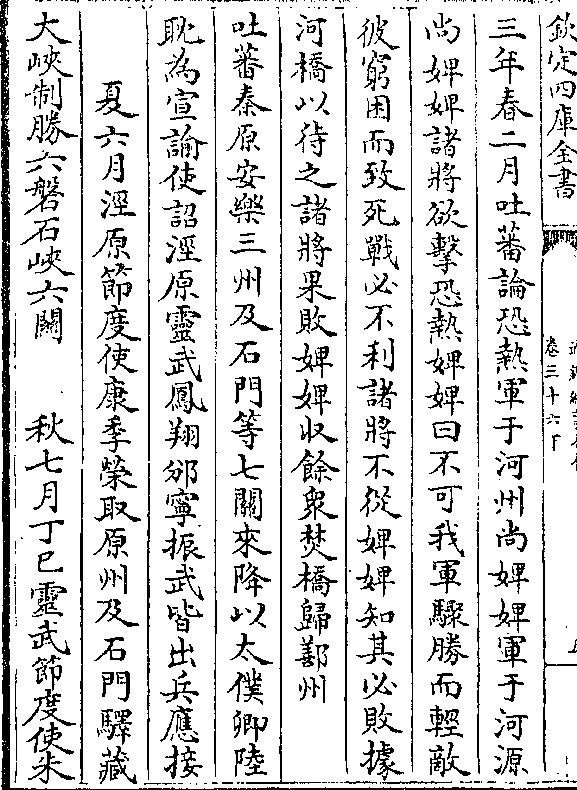 欽定四庫全書
卷三十六下
三年春二月吐蕃論恐熱軍于河州尚婢婢軍于河源
尚婢婢諸將欲擊恐熱婢婢曰不可我軍驟勝而輕敵
彼窮困而致死戰必不利諸將不從婢婢知其必敗據
河橋以待之諸將果敗婢婢收餘衆焚橋歸鄯州
吐蕃秦原安樂三州及石門等七關來降以太僕卿陸
耽為宣諭使詔涇原靈武鳳翔邠寧振武皆出兵應接
夏六月涇原節度使康季榮取原州及石門驛藏
大峽制勝六磐石峽六關　秋七月丁巳靈武節度使朱